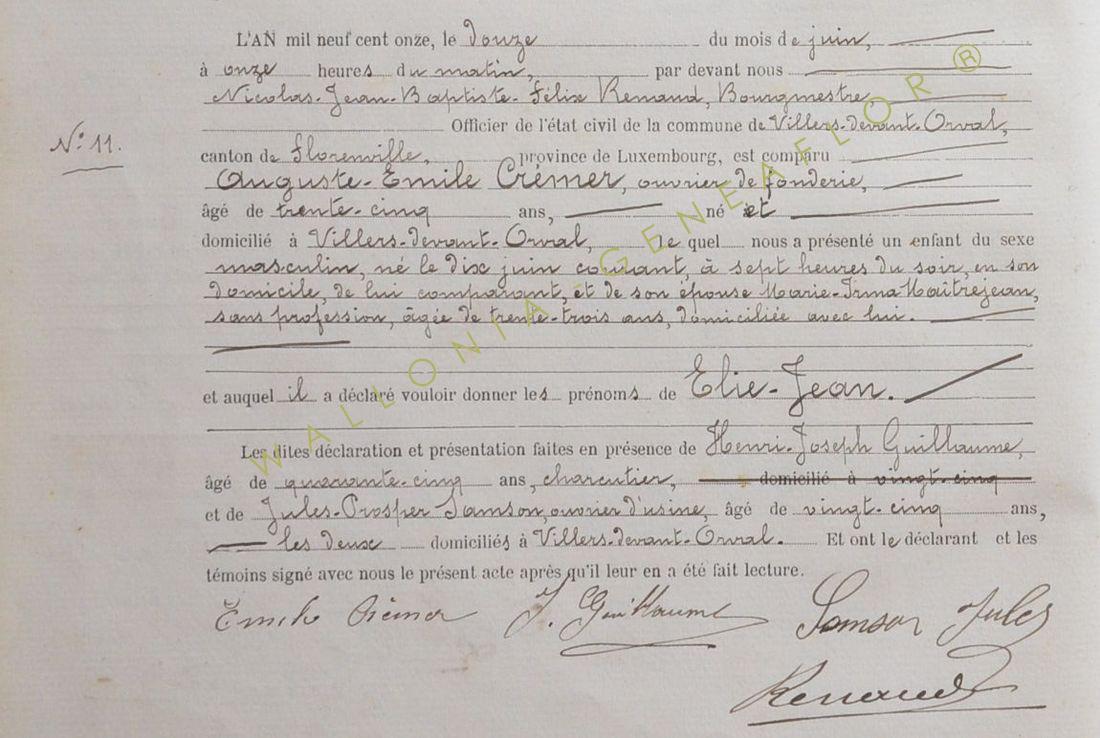 L'AN mil neuf cent onze, le douze du mois de juin,
à onze heures du matin, par devant nous
Nicolas-Jean-Baptiste-Félix Renaud, Bourgmestre,
Officier de l'état civil de la commune de Villers-devant-Orval,
N° 11.
canton de Florenville, province de Luxembourg, est comparu
Auguste-Emile Crémer, ouvrier de fonderie,
âgé de trente-cinq ans, né et
domicilié à Villers-devant-Orval, le quel nous a présenté un enfant du sexe
masculin, né le dix juin courant, à sept heures du soir, en son
domicile, de lui comparant, et de son épouse Marie-Irma Maîtrejean,
sans profession, âgée de trente-trois ans, domiciliée avec lui.
et auquel il a déclaré vouloir donner les prénoms de Elie-Jean.
Les dites déclaration et présentation faites en présence de Henri-Joseph Guillaume,
âgé de quarante-cinq ans, charcutier, domicilié à vingt-cinq
et de Jules-Prosper Samson, ouvrier d'usine, âgé de vingt-cinq ans,
les deux domiciliés à Villers-devant-Orval. Et ont le déclarant et les
témoins signé avec nous le présent acte après qu'il leur en a été fait lecture.
Emile Crémer J. Guillaume Samson Jules
Renaud
WALLONIA-GENEAFLOR ®